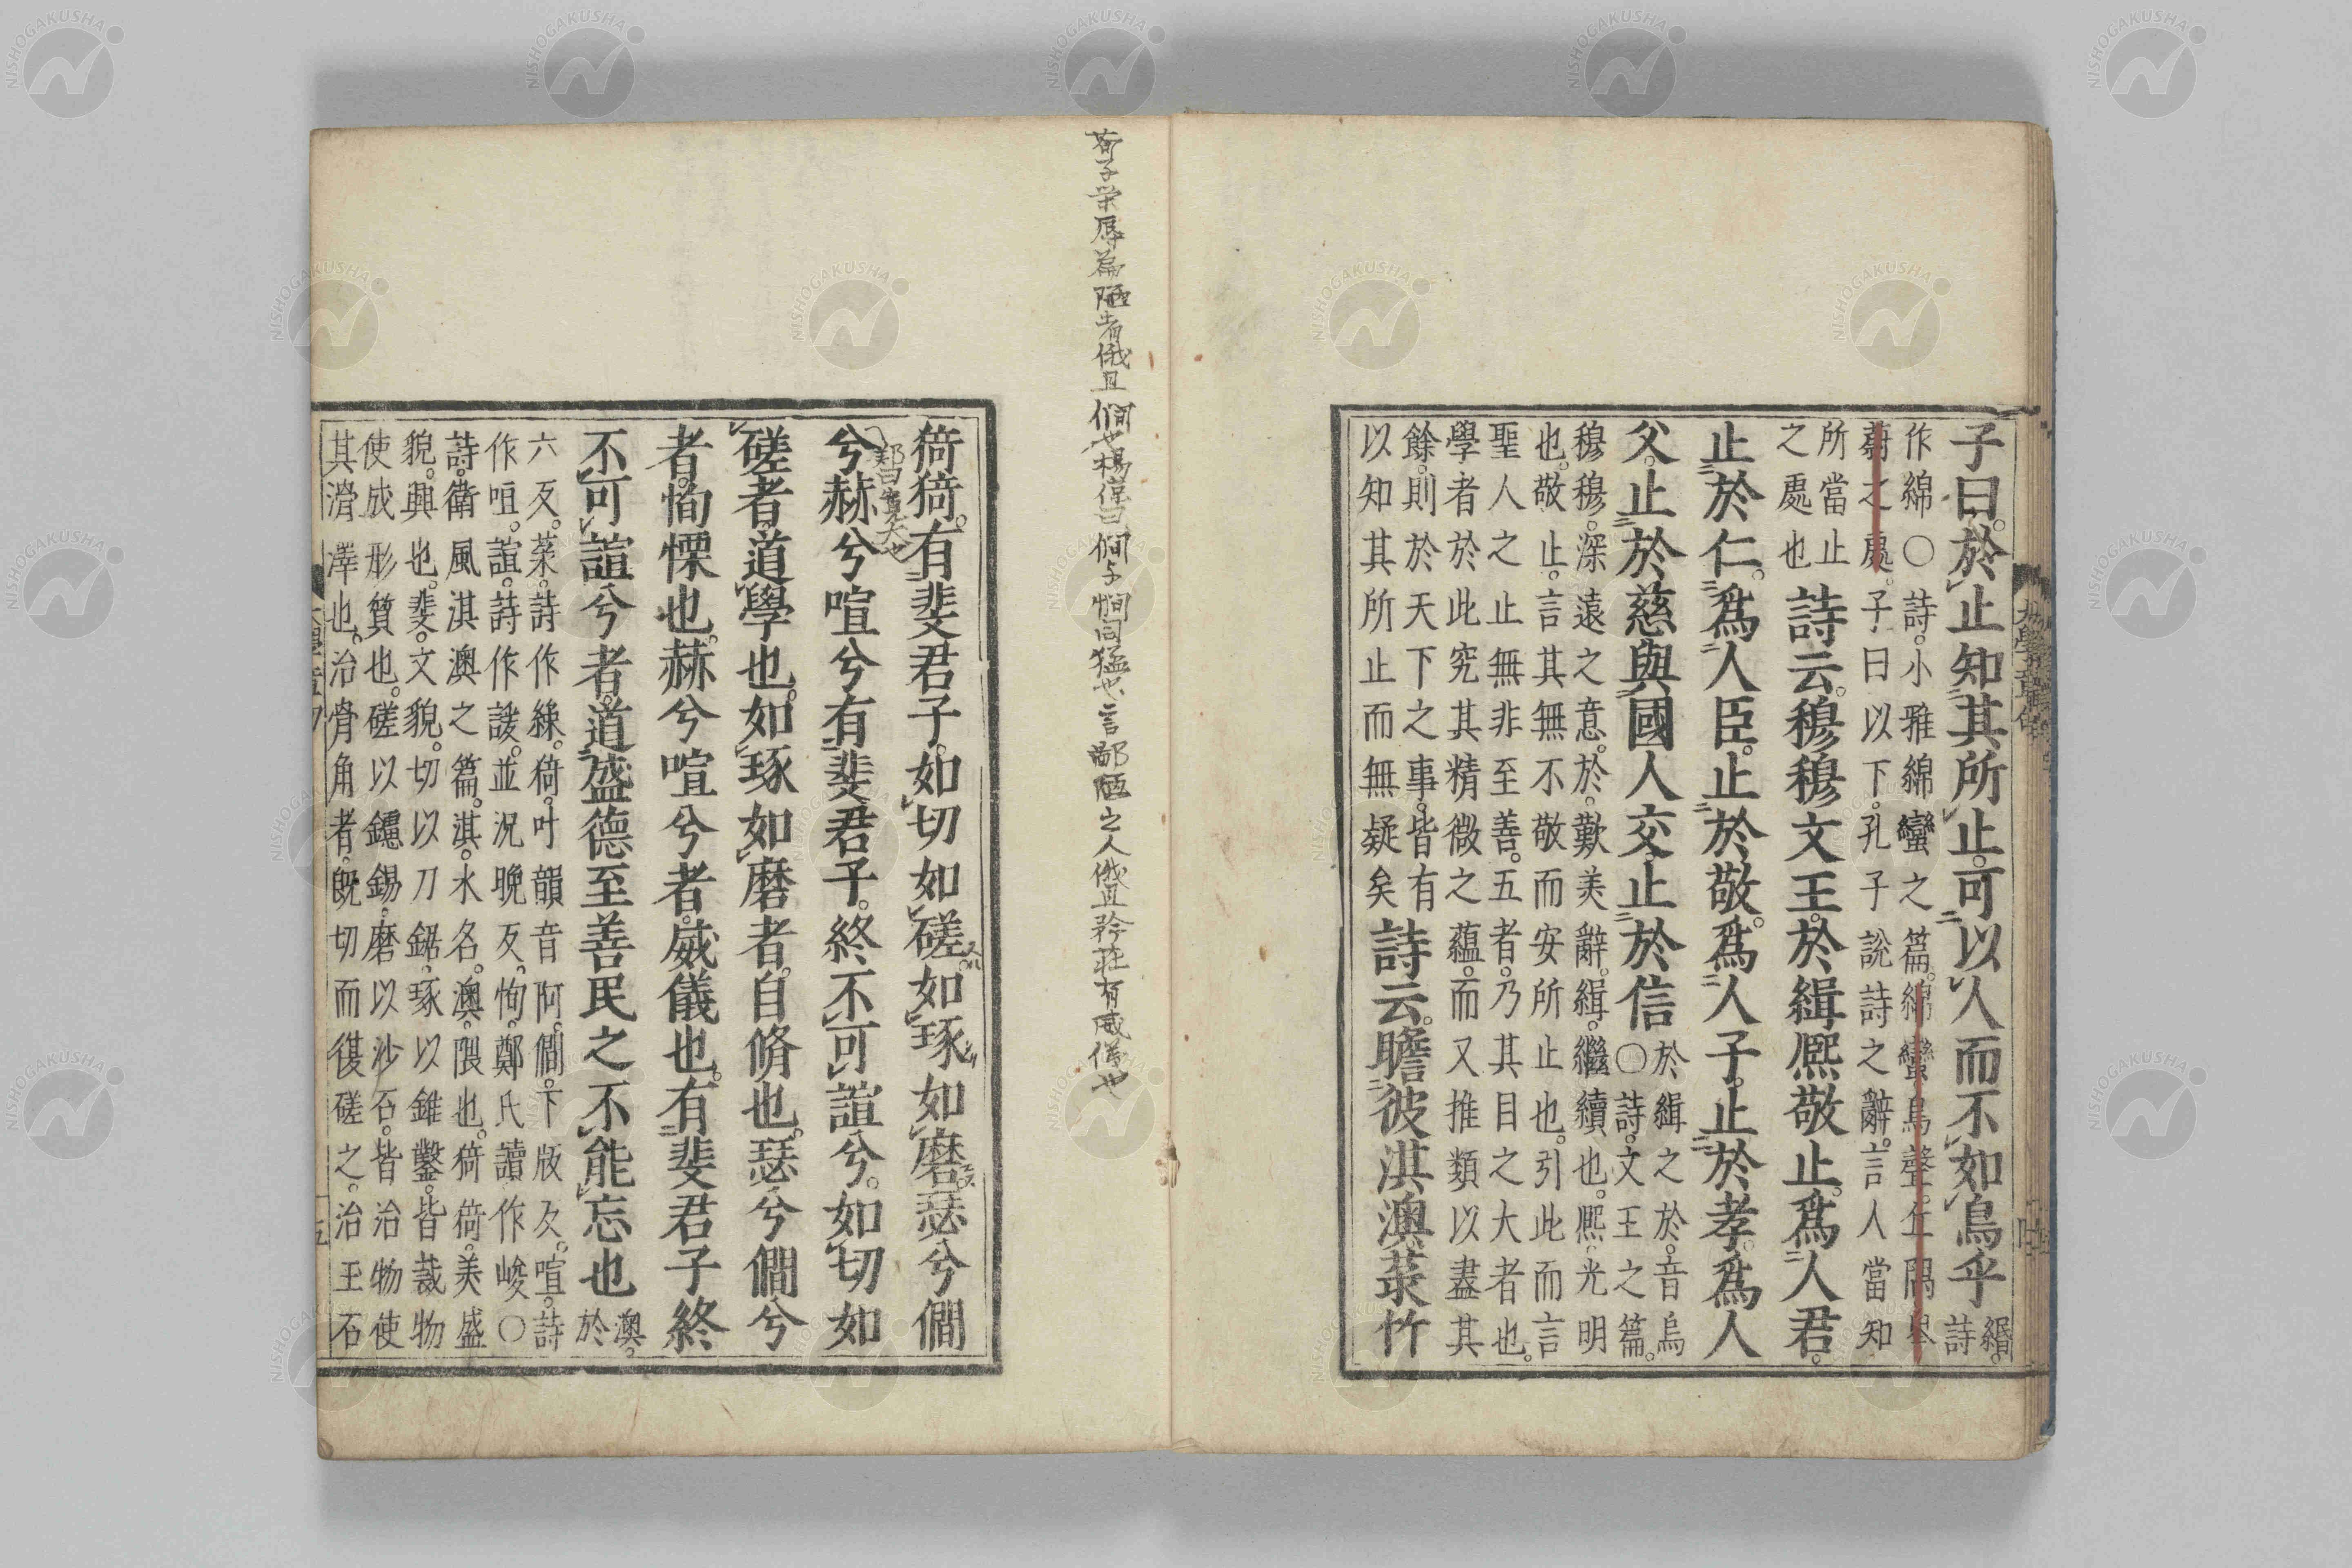 子曰。於止知其所止。可以人而不如鳥乎
緡。
詩
作綿〇詩。小雅綿蠻之篇。綿蠻鳥聲。丘隅岑
蔚之處。子曰以下。孔子說詩之辭。言人當知
所當止
之處也
詩云。穆穆文王。於緝熙敬止。爲人君。
止於仁。爲人臣。止於敬。爲人子。止於孝。爲人
父。止於慈與國人交。止於信
於緝之於。音烏
〇詩。文王之篇。
穆穆。深遠之意。於。歎美辭。緝。繼續也。熙。光明
也。敬止。言其無不敬而安所止也。引此而言
聖人之止無非至善。五者。乃其目之大者也。
學者於此究其精微之蘊。而又推類以盡其
餘。則於天下之事。皆有
以知其所止而無疑矣
詩云。瞻彼淇澳。菉竹
大學章句
荀子榮辱篇陋者俄且僩也楊倞曰僩与憪同猛也言鄙陋之人俄且矜莊有威儀也
猗猗。有斐君子。如切如磋。如琢如磨。瑟兮僩
兮赫兮喧兮。有斐君子。終不可諠兮。如切如
磋者。道學也。如琢如磨者。自脩也。瑟兮僩兮
者。恂慄也。赫兮喧兮者。威儀也。有斐君子終
不可諠兮者。道盛德至善民之不能忘也
澳。
於
六反。菉。詩作綠。猗。叶韻音阿。僩。下版反。喧。詩
作咺。諠。詩作諼。並況晚反。恂。鄭氏讀作峻〇
詩。衛風淇澳之篇。淇。水名。澳。隈也。猗猗。美盛
貌。興也。斐。文貌。切以刀鋸。琢以錐鑿。皆裁物
使成形質也。磋以鑢鍚。磨以沙石。皆治物使
其滑澤也。治骨角者。旣切而復磋之。治玉石
五